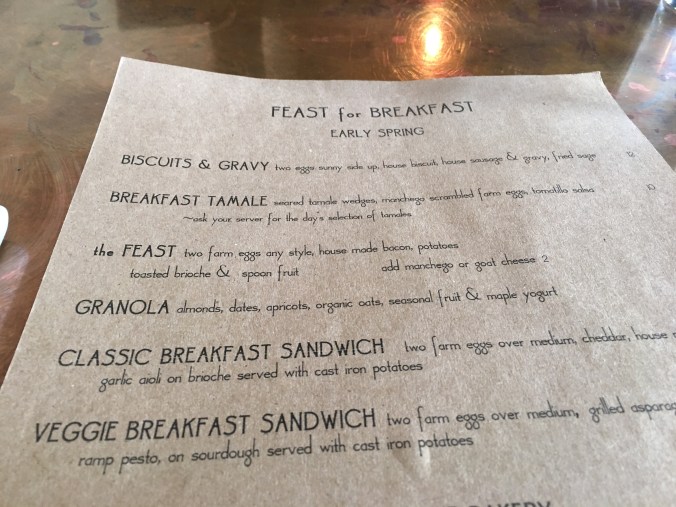 FEAST for BREAKFAST
EARLY SPRING
BISCUITS & GRAVY two eggs sunny side up, house biscuit, house sausage & gravy, fried sage
BREAKFAST TAMALE seared tamale wedges, manchego scrambled farm eggs, tomatillo salsa 10
~ask your server for the day's selection of tamales
the FEAST two farm eggs any style, house made bacon, potatoes
toasted brioche & spoon fruit add manchego or goat cheese 2
GRANOLA almonds, dates, apricots, organic oats, seasonal fruit & maple yogurt
CLASSIC BREAKFAST SANDWICH two farm eggs over medium, cheddar, house
garlic aioli on brioche served with cast iron potatoes
VEGGIE BREAKFAST SANDWICH two farm eggs over medium, grilled asparag
ramp pesto, on sourdough served with cast iron potatoes